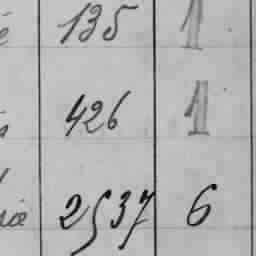 135 1
426 1
2537 6